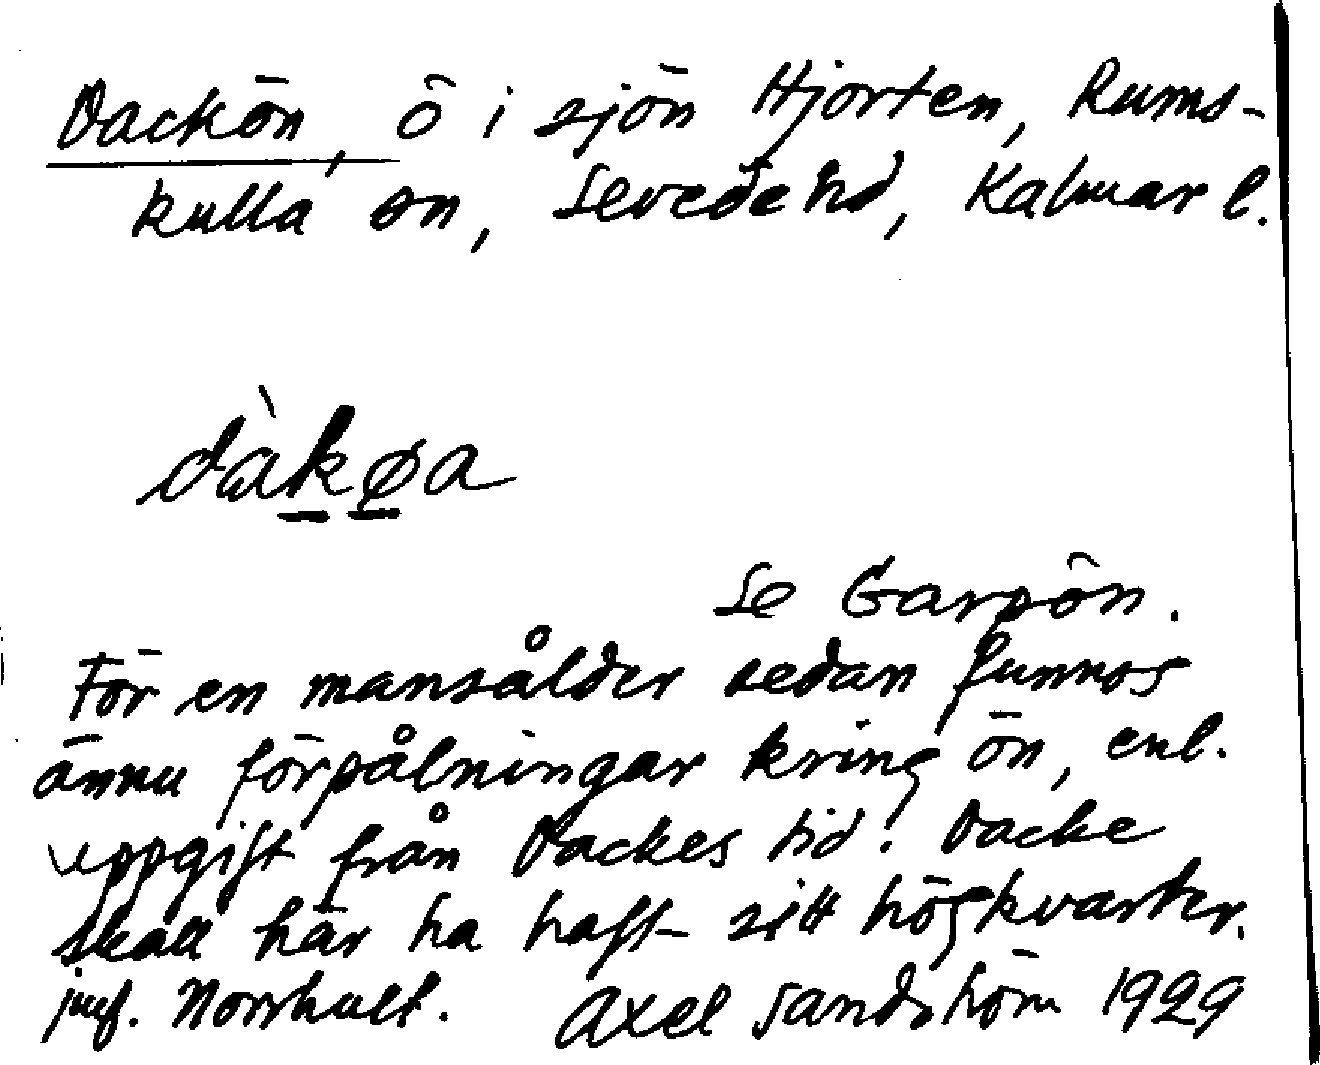 Dackön, ö i sjön Hjorten, Rums-
kulla sn, Sevede hd, Kalmar l.
dàkøa
Se Garpön.
För en mansålder sedan funnos
ännu förpålningar kring ön, enl.
uppgift från Dackes tid. Dacke
skall här ha haft sitt högkvarter.
jmf. Norrhult. Axel Sandström 1929